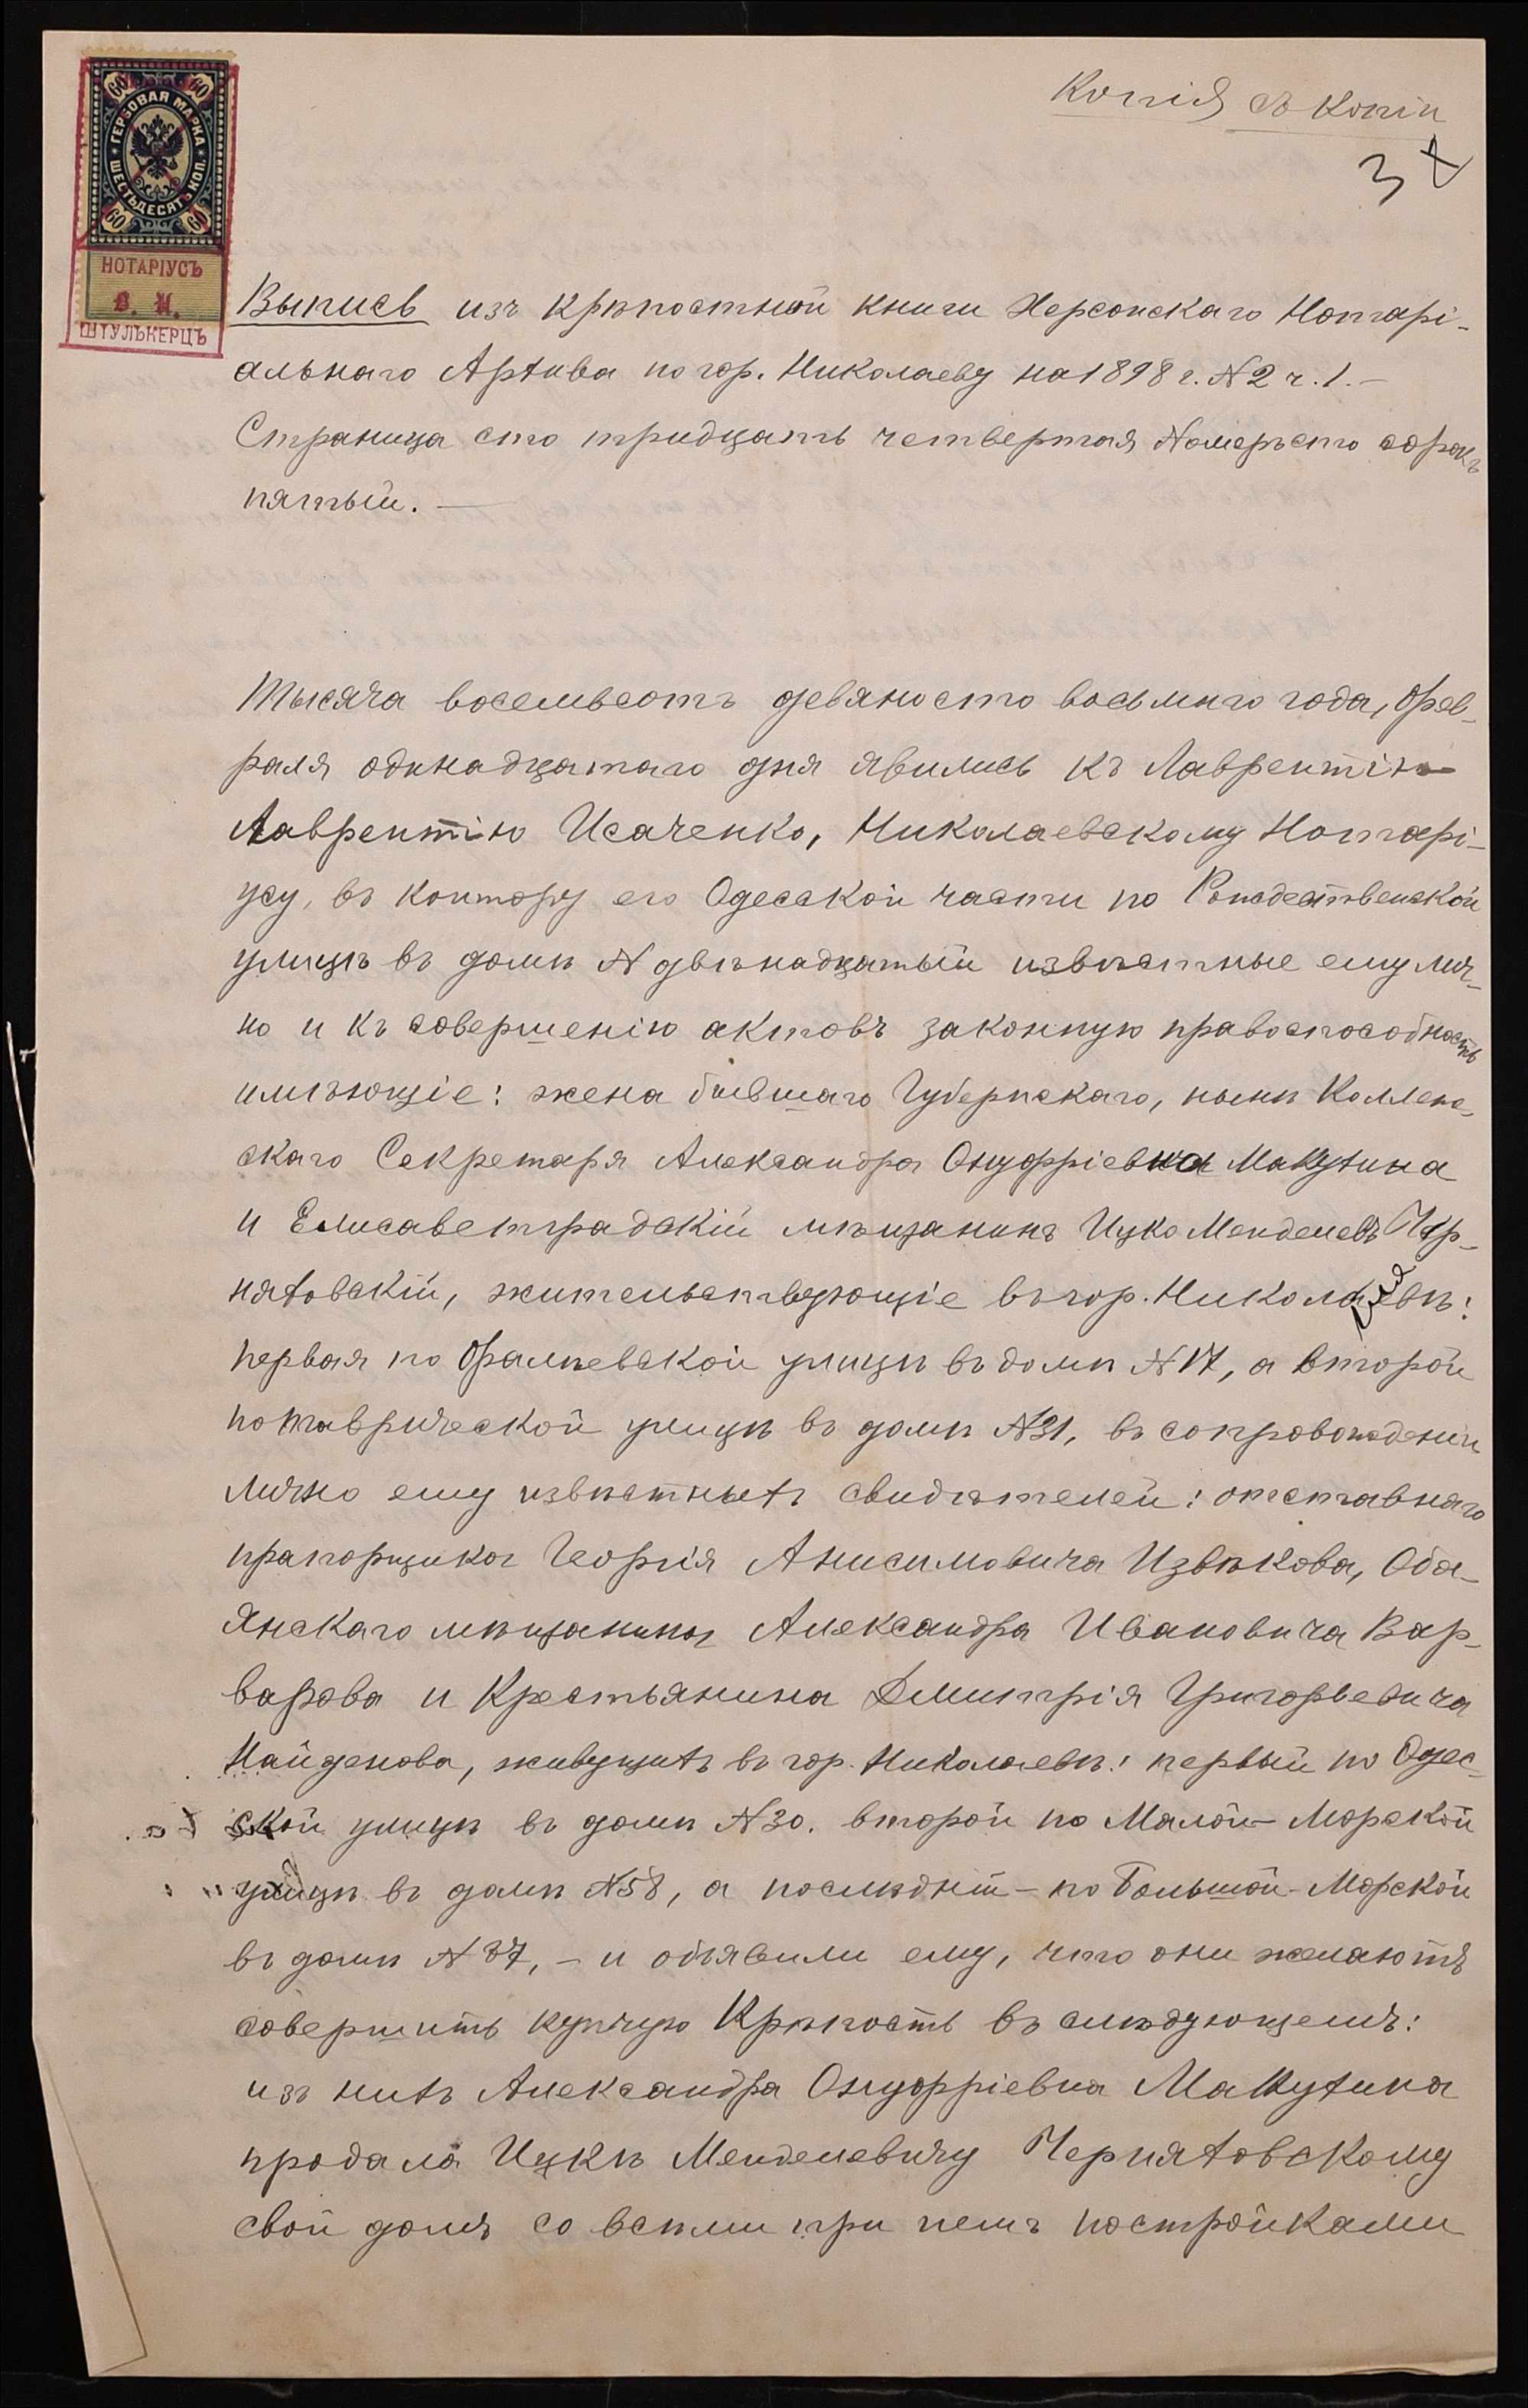 Копія съ копіи
3
60 60
ГЕРБОВАЯ МАРКА
ШЕСТЬДЕСЯТЪ КОП.
60 60
НОТАРІУСЪ
В. И.
ШТУЛЬКЕРЦЪ
Выпись изъ крѣпостной книги Херсонскаго Нотарі-
альнаго Архива по гор. Николаеву на 1898 г. № 2 ч. 1. —
Страница сто тридцать четвертая Номеръ сто сорокъ
пятый. —
Тысяча восемьсотъ девяносто восьмого года, Фев-
раля одинадцатаго дня явились къ Лаврентію
Лаврентію Исаченко, Николаевскому Нотарі-
усу, въ контору его Одесской части по Рождественской
улицѣ въ домѣ № двѣнадцатый извѣстные ему лич-
но и къ совершенію актовъ законную правоспособность
имѣющіе: жена бывшаго Губернскаго, нынѣ Коллеж-
скаго Секретаря Александра Онуфріевна Макухина
и Елисаветградскій мѣщанинъ Ицко Менделевъ Чер-
няховскій, жительствующіе въ гор. Николаевѣ:
первая по Фалѣевской улицѣ въ домѣ № 17, а второй
по Таврической улицѣ въ домѣ № 31, въ сопровожденіи
лично ему извѣстныхъ свидѣтелей: отставнаго
прапорщика Георгія Анисимовича Извѣкова, Обо-
янскаго мѣщанина Александра Ивановича Вар-
варова и Крестьянина Дмитрія Григорьевича
Найденова, живущихъ въ гор. Николаевѣ: первый по Одес-
ской улицѣ въ домѣ № 30. второй по Малой-Морской
улицѣ въ домѣ № 58, а послѣдній - по Большой-Морской
въ домѣ № 37, - и объявили ему, что они желаютъ
совершить купчую Крѣпость въ слѣдующемъ:
изъ нихъ Александра Онуфріевна Макухина
продала Ицкѣ Менделевичу Черняховскому
свой домъ со всѣми при немъ постройками